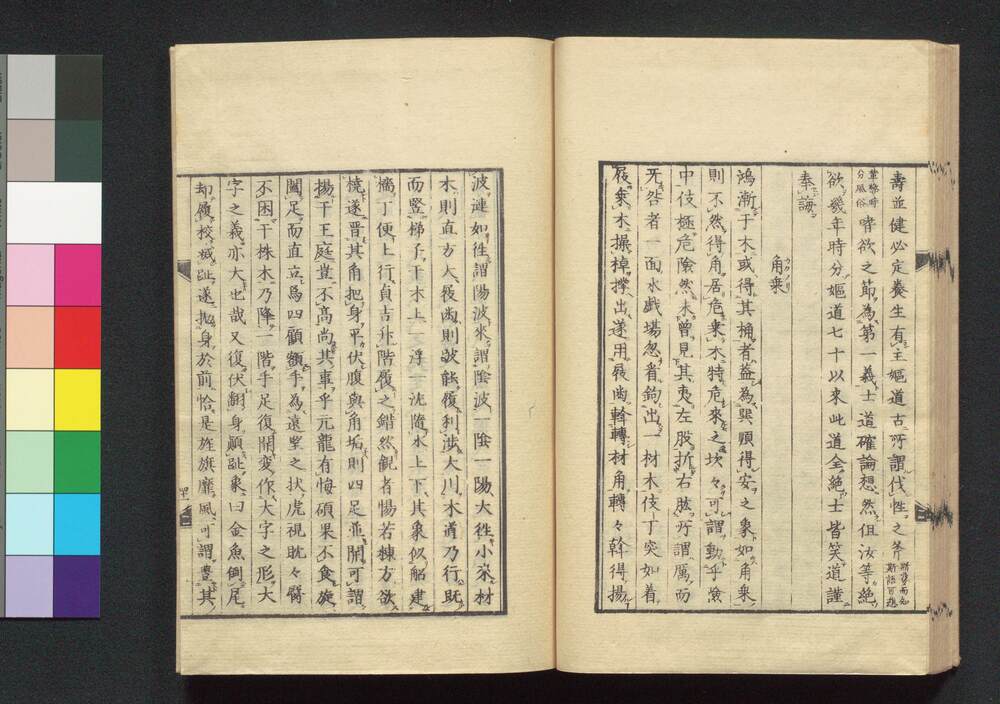 壽並健必定養生有主嫗道古所謂伐性之斧
皆欲之節為第一義士道確論想然但汝等絶
欲幾年時分嫗道七十以來此道全絶士皆笑道謹
奉誨
角乗
鴻漸于木或得其桷者蓋為巽順得安之象如角乗
則不然得角居危乗木特危來之坎々可謂動乎險
中伎極危險然未曾見其夷左股折右肱所謂厲而
无咎者一面水戯場忽看鉤出一材木伎丁突如着
屐乗木操棹撑出遂用屐齒斡轉材角轉々斡得揚
波漣如徃謂陽波來謂陰波一陰一陽大徃小來材
木則直方大屐齒則敏能履利渉大川木道乃行既
而竪梯子于木上一浮一沈隨水上下其象似船建
檣丁便上行貞吉升階履之錯然観者惕若棟方欲
橈遂晋其角把身平伏腹與角垢則四足並開可謂
揚于王庭豈不高尚其事乎元龍有悔碩果不食旋
闔足而直立為四顧額手為遠望之状虎視眈々臀
不困于株木乃降一階手足復開変作大字之形大
字之義亦大也哉又復伏翻身顛趾象曰金魚倒尾
却履校滅趾遂抛身於前恰是旌旗靡風可謂豊其